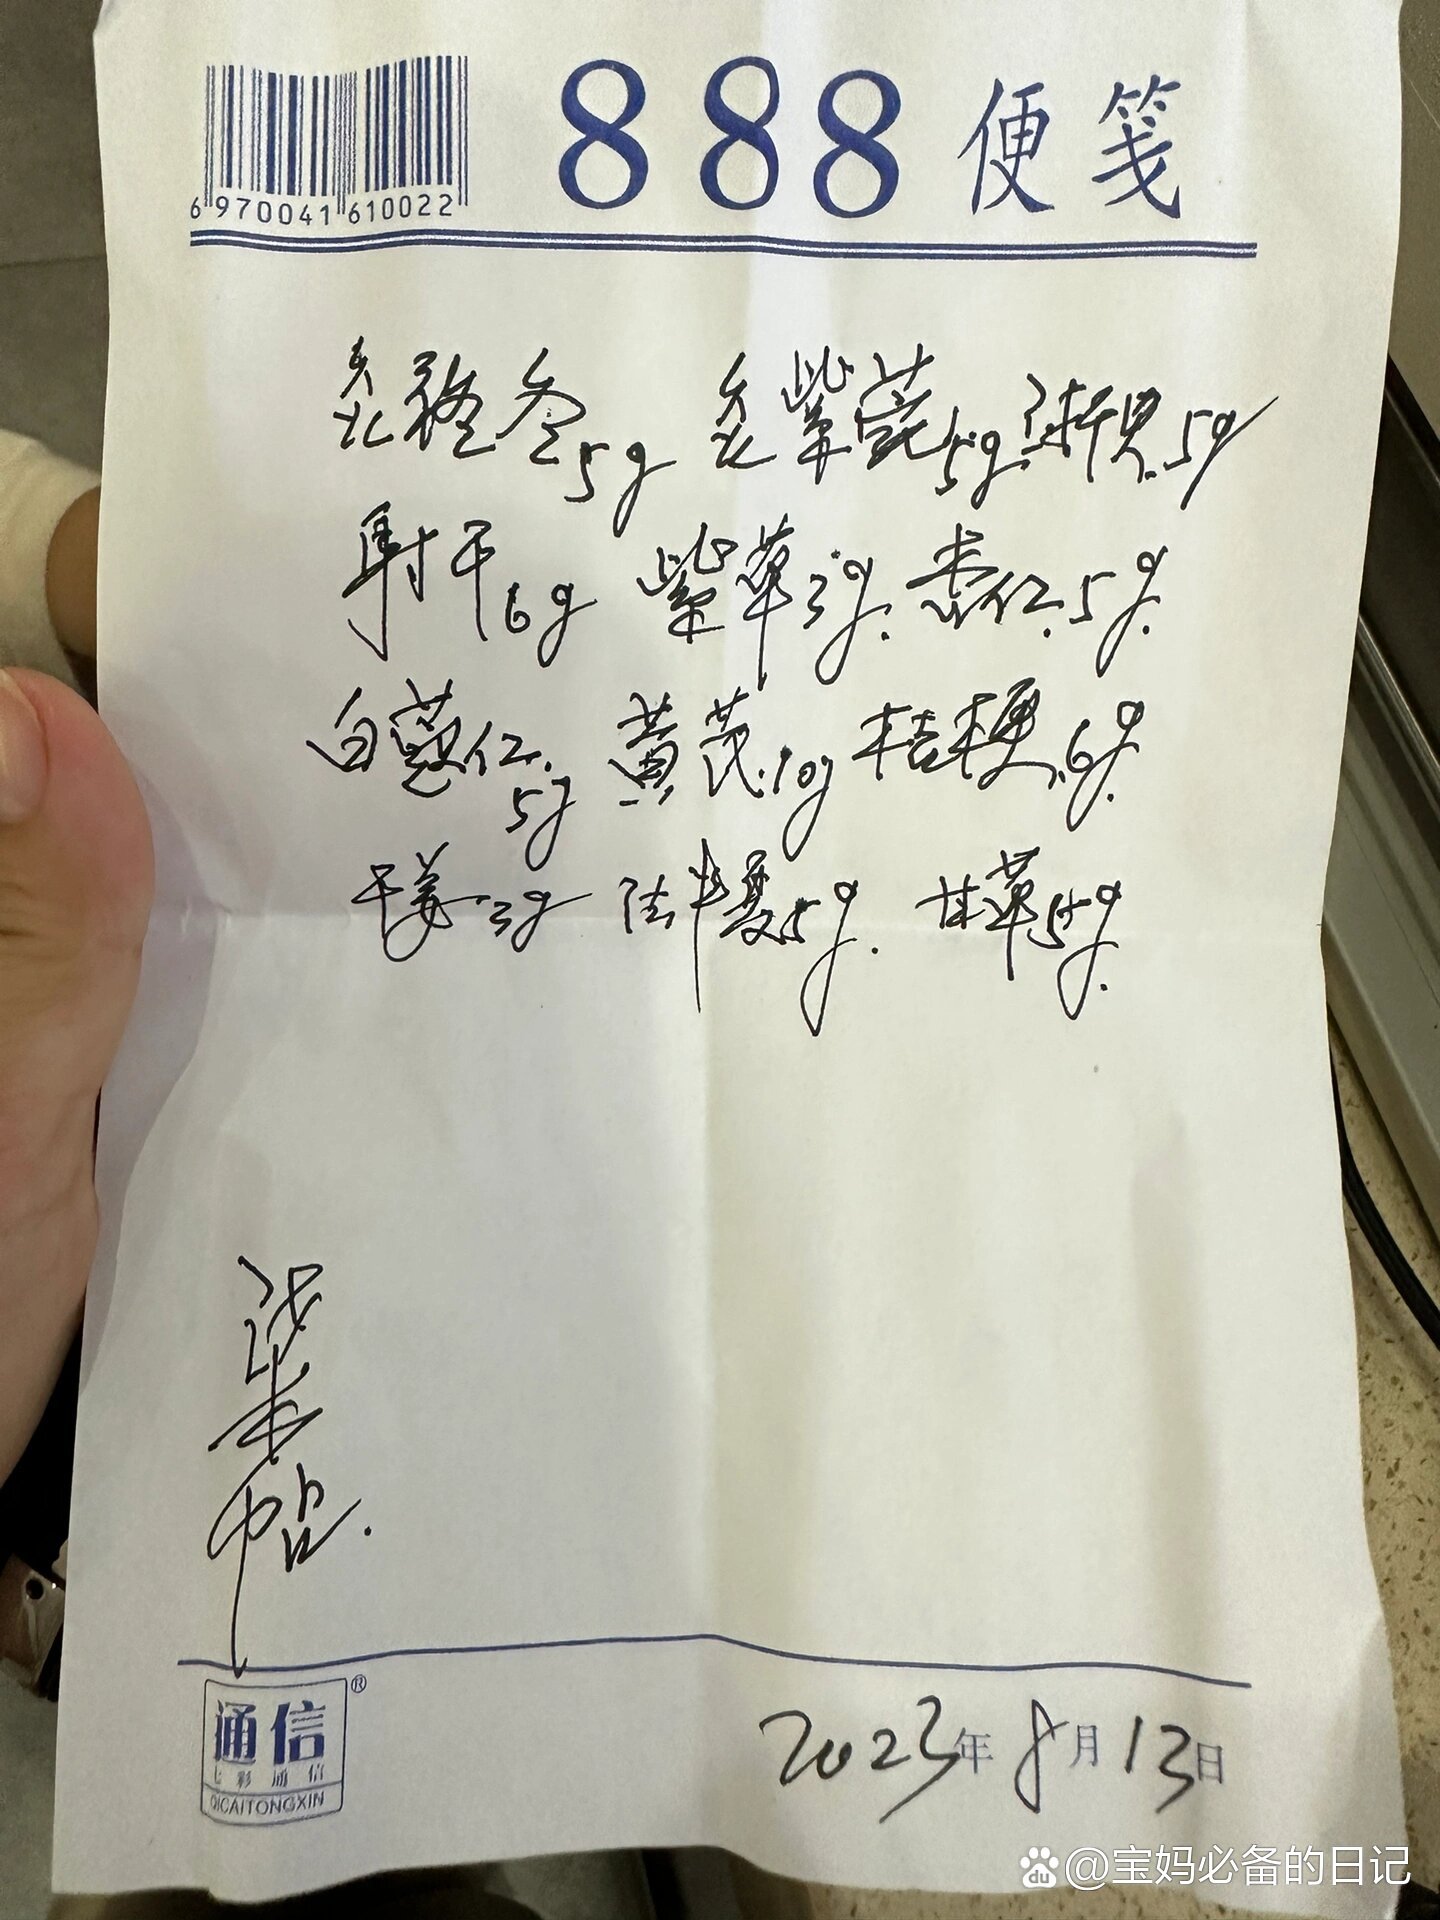 888便笺
6970041610022
炙款冬5g 炙紫菀5g 浙贝5g
射干6g 紫草3g. 杏仁.5g.
白蔻仁.5g 黄芪.10g 桔梗.6g.
干姜.3g 法半夏5g. 甘草5g.
®
通信
七彩通信
QICAITONGXIN
2023年8月13日
du @宝妈必备的日记